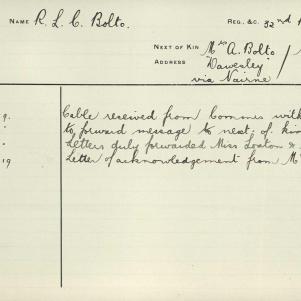 NAME R. L. C. Bolto. REG. &C. 32nd
NEXT OF KIN Mrs A. Bolto.
ADDRESS "Dawesley"
via Nairne
9. Cable received from Commrs with
" to forward message to next of kin
" Letters duly forwarded Miss Loxton &
19 Letter of acknowledgement from M